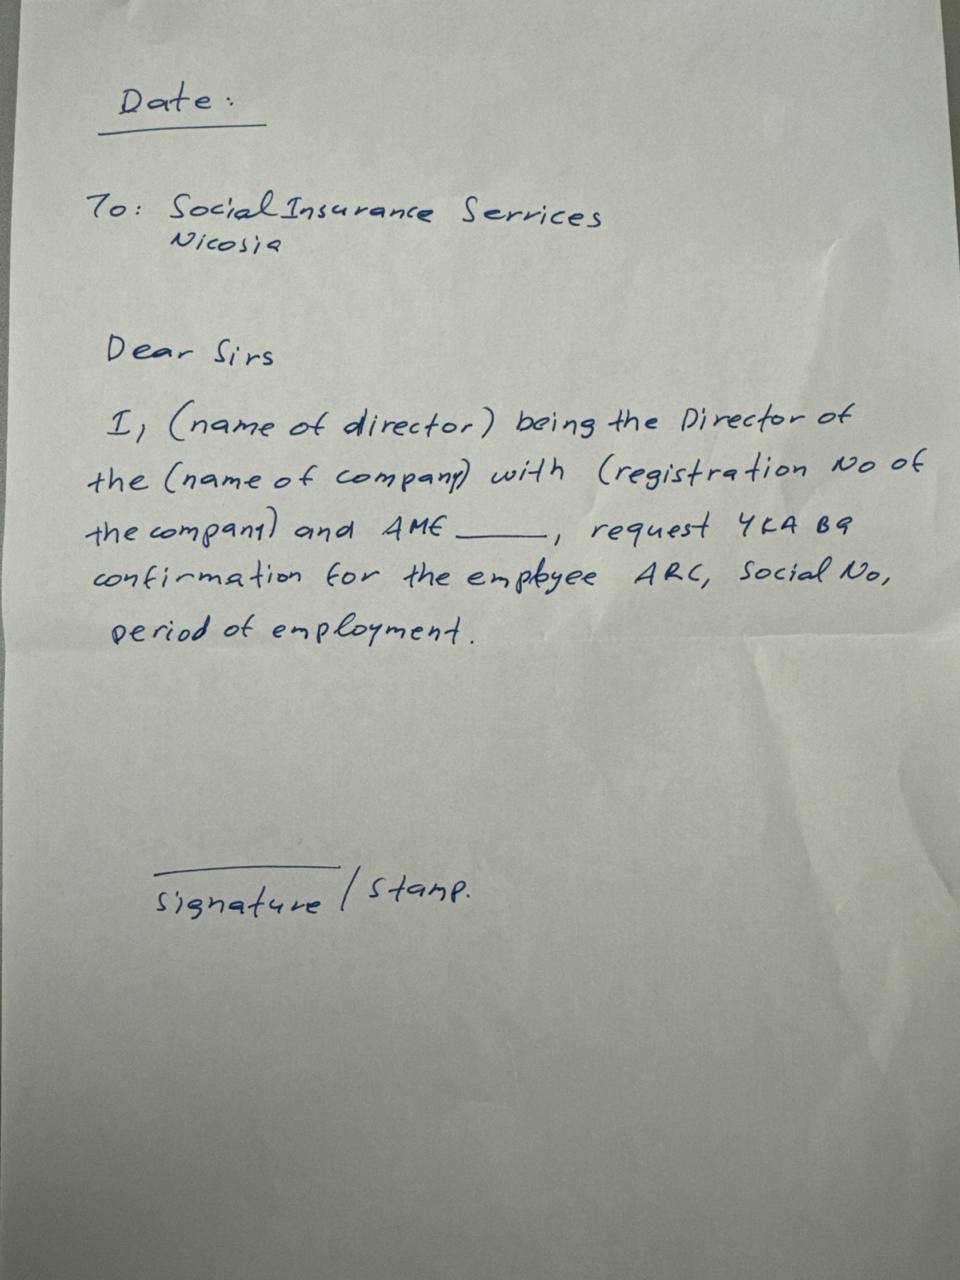 Date:
To: Social Insurance Services
Nicosia
Dear Sirs
I, (name of director) being the Director of
the (name of company) with (registration No of
the company) and AME ____, request YKA B9
confirmation for the employee ARC, Social No,
period of employment.
signature / stamp.